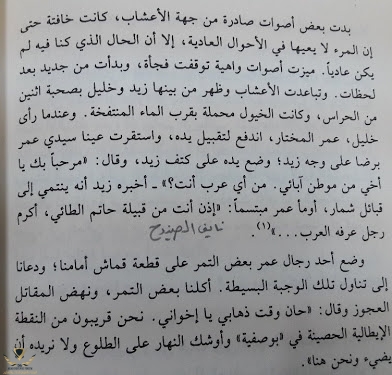 بدت بعض أصوات صادرة من جهة الأعشاب، كانت خافتة حتى
إن المرء لا يعيها في الأحوال العادية، إلا أن الحال الذي كنا فيه لم
يكن عادياً. ميزت أصوات واهية توقفت فجأة، وبدأت من جديد بعد
لحظات. وتباعدت الأعشاب وظهر من بينها زيد وخليل بصحبة اثنين
من الحراس، وكانت الخيول محملة بقرب الماء المنتفخة. وعندما رأى
خليل، عمر المختار، اندفع لتقبيل يده، واستقرت عينا سيدي عمر
برضا على وجه زيد؛ وضع يده على كتف زيد، وقال: «مرحباً بك يا
أخي من موطن آبائي. من أي عرب أنت؟» ـ أخبره زيد أنه ينتمي إلى
قبائل شمار، أومأ عمر مبتسماً: «إذن أنت من قبيلة حاتم الطائي، أكرم
رجل عرفه العرب...»(١). نايف
وضع أحد رجال عمر بعض التمر على قطعة قماش أمامنا؛ ودعانا
إلى تناول تلك الوجبة البسيطة. أكلنا بعض التمر، ونهض المقاتل
العجوز وقال: «حان وقت ذهابي يا إخواني. نحن قريبون من النقطة
الإيطالية الحصينة في «بوصفية» وأوشك النهار على الطلوع ولا نريده أن
يضيء ونحن هنا».